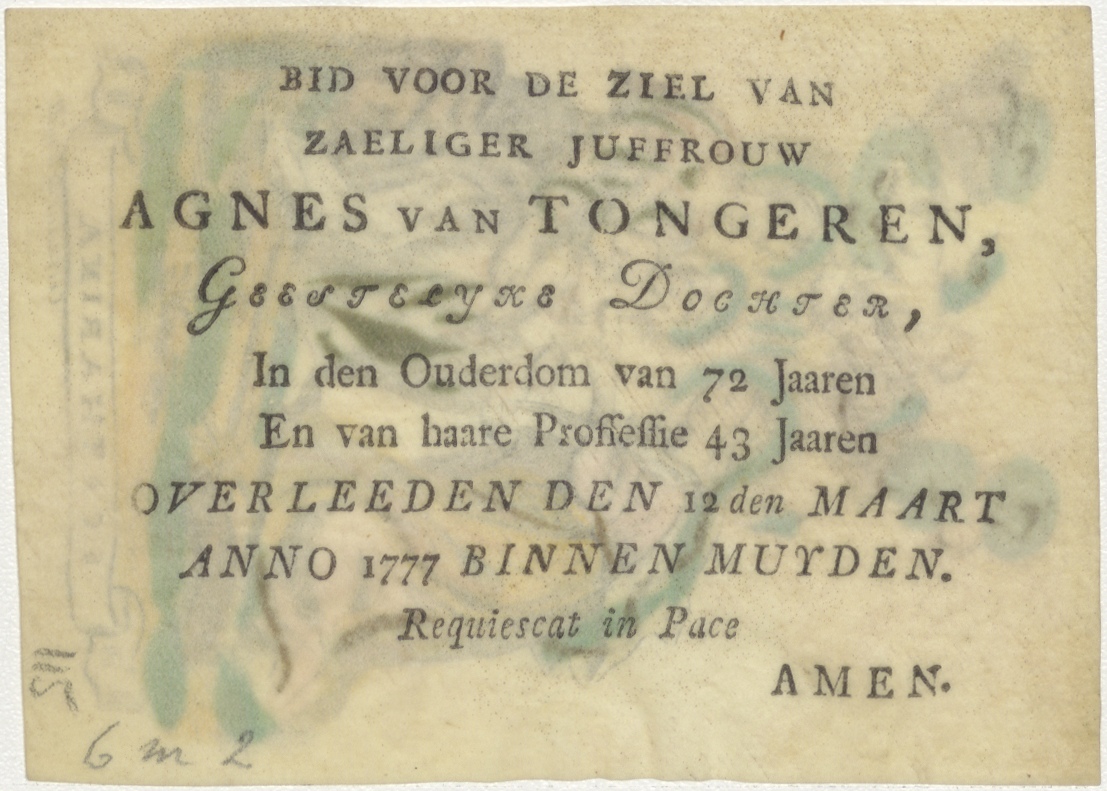 BID VOOR DE ZIEL VAN
ZAELIGER JUFFROUW
AGNES VAN TONGEREN,
GEESTELYKE DOCHTER,
In den Ouderdom van 72 Jaaren
En van haare Proffeſſie 43 Jaaren
OVERLEEDEN DEN 12 den MAART
ANNO 1777 BINNEN MUYDEN.
Requiescat in Pace
AMEN.
6 m 2